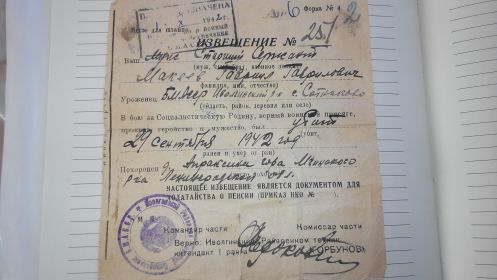 Форма № 4
2
1942 г.
ИЗВЕЩЕНИЕ № 257
Ваш муж Старший Сержант
(муж, сын, брат, военное звание)
Макеев Гавриил Гаврилович
(фамилия, имя, отчество)
Уроженец Иволгинский р-н с. Сотниково
(область, район, деревня или село)
В бою за Социалистическую Родину, верный воинской присяге,
проявив геройство и мужество, был убит
(убит,
29 сентября 1942 год
ранен и умер от ран)
Похоронен д. Апраксин гора Мгинского
р-на Ленинградской обл.
НАСТОЯЩЕЕ ИЗВЕЩЕНИЕ ЯВЛЯЕТСЯ ДОКУМЕНТОМ ДЛЯ
ХОДАТАЙСТВА О ПЕНСИИ (ПРИКАЗ НКО №
Командир части
Комиссар части
Верно: Иволгинский
интендант 1 ранга
(ГОРБУНОВ)